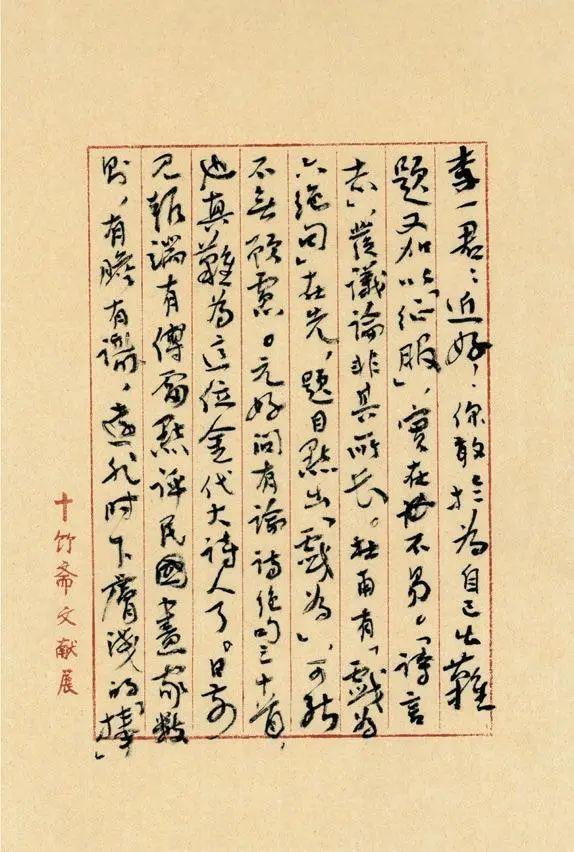 李一君：近好，你敢於為自己出難
題又加以「征服」，實在也不易。「詩言
志」，發議論非其所长。杜甫有「戲為
六絕句」在先，題目點出「戲為」，可能
不無顧慮。元好問有論詩絕句三十首，
也真難為這位金代大詩人了。日前
見報端有傅雷點評民國畫家數
則，有膽有識，遠非时下膚淺的「捧」
十竹斋文献展